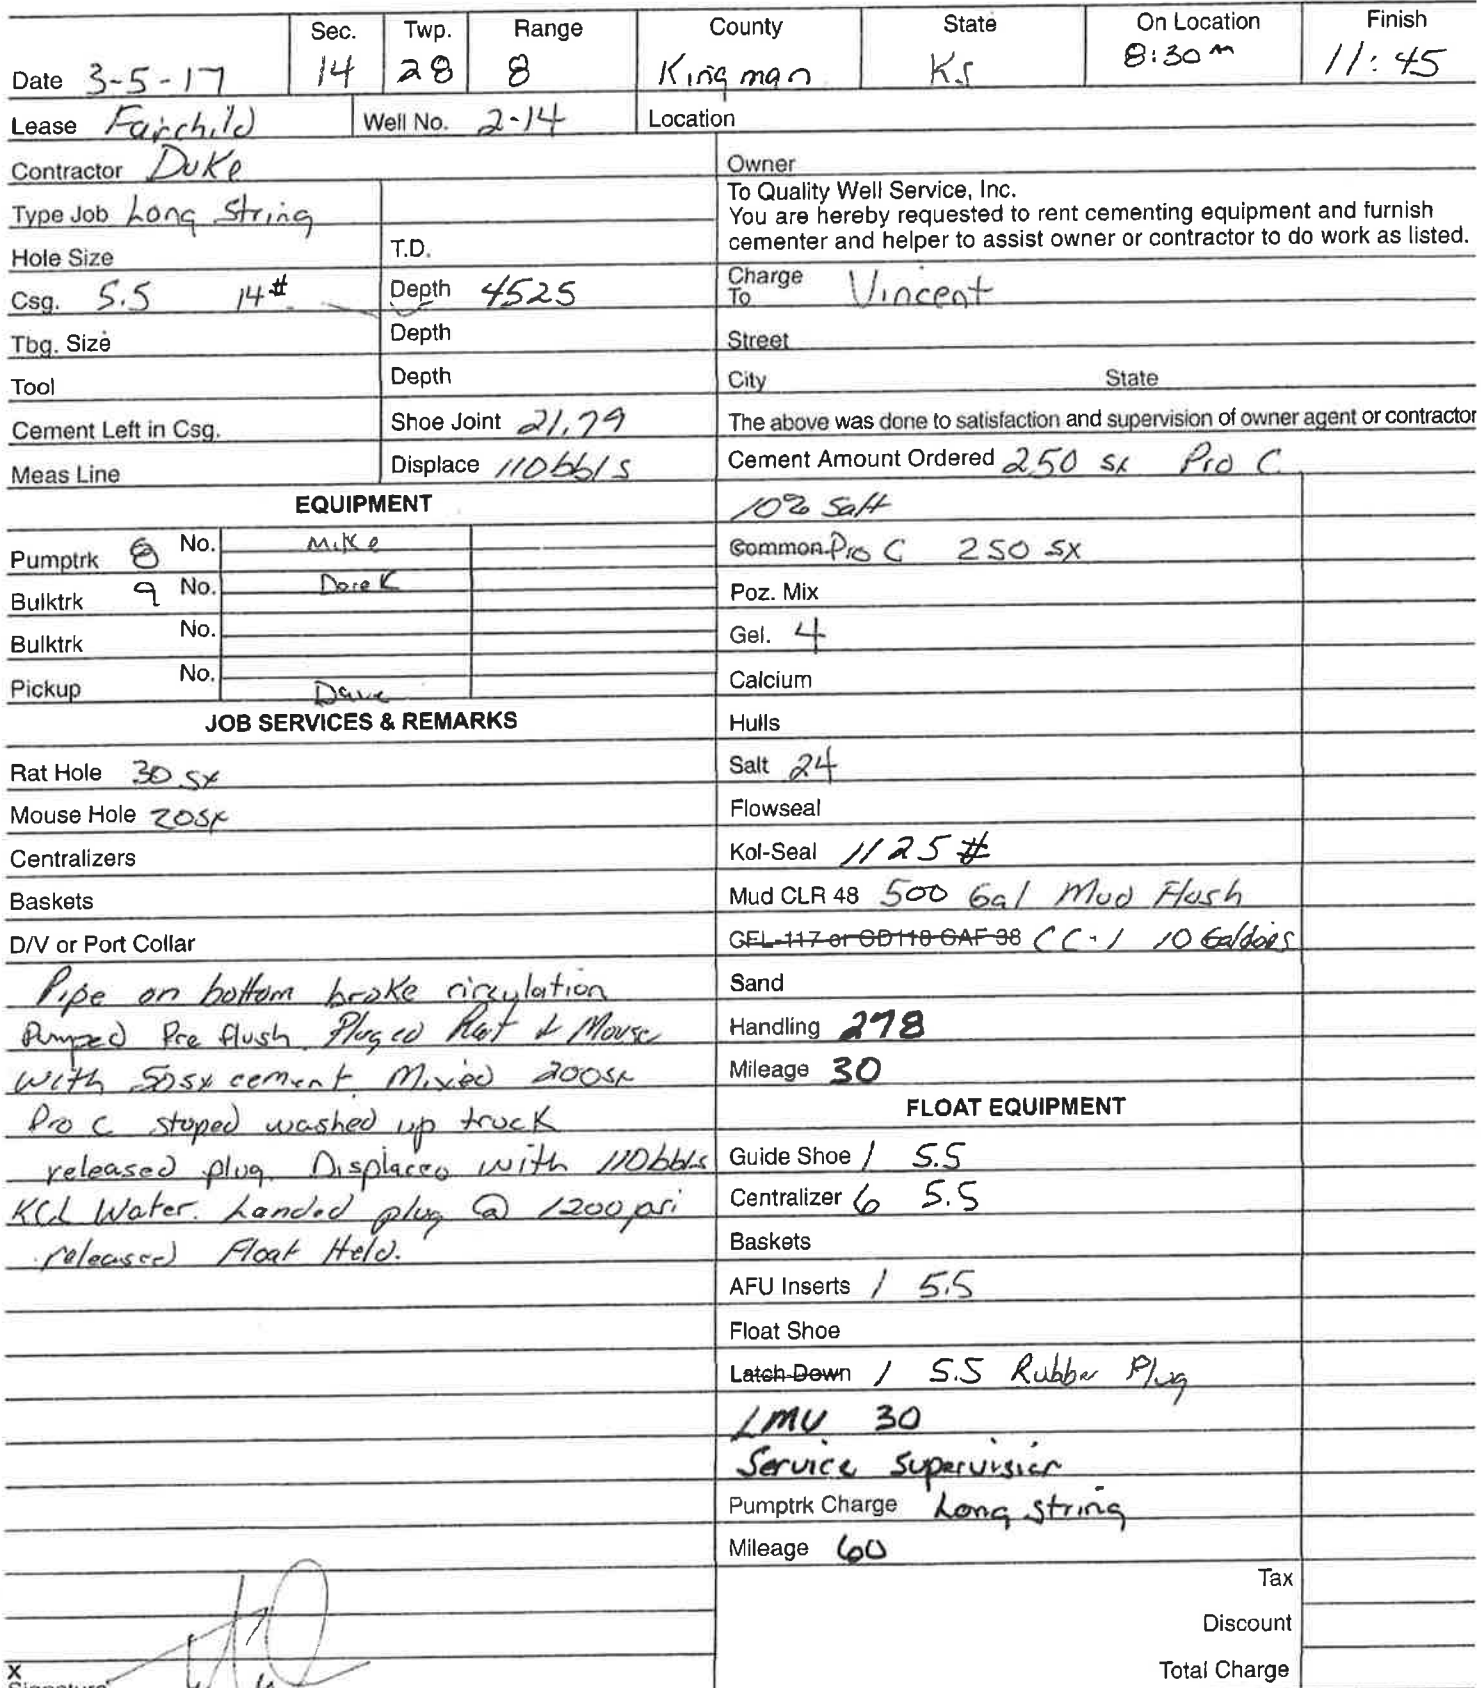 Sec. Twp. Range County State On Location Finish
Date 3-5-17 14 28 8 Kingman KS 8:30 m 11:45
Lease Fairchild Well No. 2-14 Location
Contractor Duke
Type Job Long String
Hole Size T.D.
Csg. 5.5 14# Depth 4525
Tbg. Size Depth
Tool Depth
Cement Left in Csg. Shoe Joint 21.79
Meas Line Displace 110 bbls
EQUIPMENT
Pumptrk 8 No. Mike
Bulktrk 9 No. Derek
Bulktrk No.
Pickup No. Dave
JOB SERVICES & REMARKS
Rat Hole 30 sx
Mouse Hole 20 sx
Centralizers
Baskets
D/V or Port Collar
Pipe on bottom broke circulation
Pumped Pre flush Pluged Rat & Mouse
with 50sx cement Mixed 200sx
Pro C stoped washed up truck
released plug Displaced with 110bbls
KCL Water. Landed plug @ 1200 psi
released Float Held.
X
Signature
Owner
To Quality Well Service, Inc.
You are hereby requested to rent cementing equipment and furnish
cementer and helper to assist owner or contractor to do work as listed.
Charge To Vincent
Street
City State
The above was done to satisfaction and supervision of owner agent or contractor
Cement Amount Ordered 250 sx Pro C
10% Salt
Common Pro C 250 SX
Poz. Mix
Gel. 4
Calcium
Hulls
Salt 24
Flowseal
Kol-Seal 1125 #
Mud CLR 48 500 Gal Mud Flush
CFL-117 or CD110 CAF 38 CC-1 10 Gallons
Sand
Handling 278
Mileage 30
FLOAT EQUIPMENT
Guide Shoe 1 5.5
Centralizer 6 5.5
Baskets
AFU Inserts 1 5.5
Float Shoe
Latch-Down 1 5.5 Rubber Plug
LMV 30
Service Supervision
Pumptrk Charge Long String
Mileage 60
Tax
Discount
Total Charge